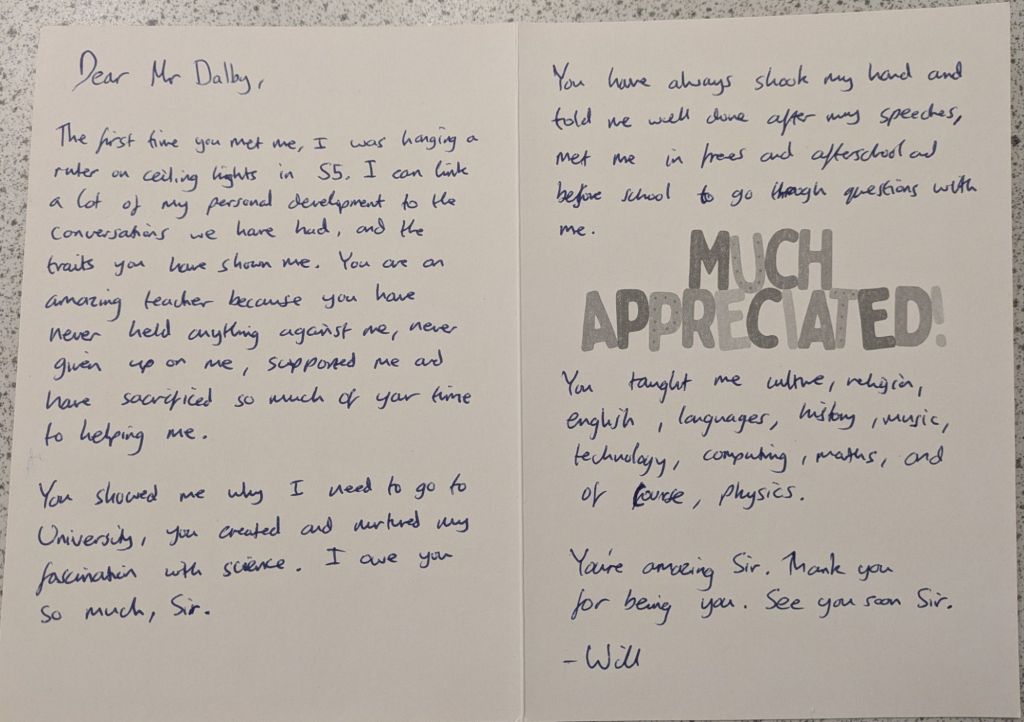 Dear Mr Dalby,
The first time you met me, I was hanging a
ruler on ceiling lights in S5. I can link
a lot of my personal development to the
conversations we have had, and the
traits you have shown me. You are an
amazing teacher because you have
never held anything against me, never
given up on me, supported me and
have sacrificed so much of your time
to helping me.
You showed me why I need to go to
University, you created and nurtured my
fascination with science. I owe you
so much, Sir.
You have always shook my hand and
told me well done after my speeches,
met me in frees and afterschool and
before school to go through questions with
me.
MUCH
APPRECIATED!
You taught me culture, religion,
english, languages, history, music,
technology, computing, maths, and
of course, physics.
You're amazing Sir. Thank you
for being you. See you soon Sir.
- Will